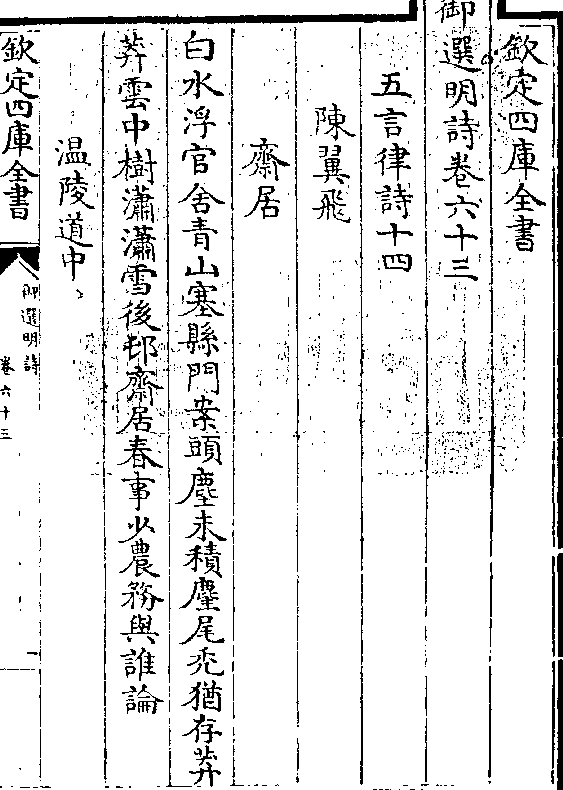 欽定四庫全書
御選明詩卷六十三
五言律詩十四
陳翼飛
齋居
白水浮官舍青山塞縣門案頭塵未積麈尾禿猶存莽
莽雲中樹瀟瀟雪後邨齋居春事少農務與誰論
温陵道中
欽定四庫全書
御選明詩
卷六十三
一